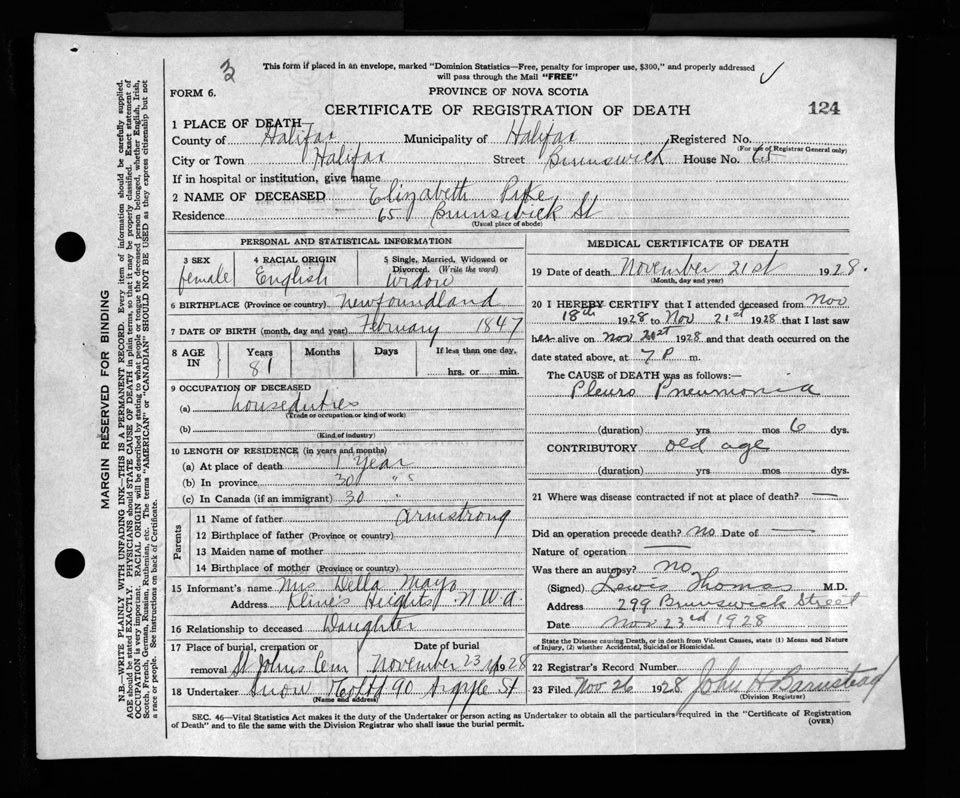 3
This form if placed in an envelope, marked "Dominion Statistics—Free, penalty for improper use, $300," and properly addressed
will pass through the Mail "FREE" ✓
FORM 6.
PROVINCE OF NOVA SCOTIA
CERTIFICATE OF REGISTRATION OF DEATH
124
MARGIN RESERVED FOR BINDING
N.B.—WRITE PLAINLY WITH UNFADING INK—THIS IS A PERMANENT RECORD. Every item of information should be carefully supplied.
AGE should be stated EXACTLY. PHYSICIANS should STATE CAUSE OF DEATH in plain terms, so that it may be properly classified. Exact statement of
OCCUPATION is very important. RACIAL ORIGIN will be described by stating to what people or tongue the deceased person belonged, whether English, Irish,
Scotch, French, German, Russian, Ruthenian, etc. The terms "AMERICAN" or "CANADIAN" SHOULD NOT BE USED as they express citizenship but not
a race or people. See instructions on back of Certificate.
1 PLACE OF DEATH
County of Halifax Municipality of Halifax Registered No.
(For use of Registrar General only)
City or Town Halifax Street Brunswick House No. 65
If in hospital or institution, give name
2 NAME OF DECEASED Elizabeth Pyke
Residence 65 Brunswick St
(Usual place of abode)
PERSONAL AND STATISTICAL INFORMATION
3 SEX 4 RACIAL ORIGIN 5 Single, Married, Widowed or
Divorced. (Write the word)
female English Widow
6 BIRTHPLACE (Province or country) Newfoundland
7 DATE OF BIRTH (month, day and year) February 1847
8 AGE IN Years Months Days If less than one day,
81 hrs. or min.
9 OCCUPATION OF DECEASED
(a) houseduties
(Trade or occupation or kind of work)
(b)
(Kind of industry)
10 LENGTH OF RESIDENCE (in years and months)
(a) At place of death 1 Year
(b) In province 30 " s
(c) In Canada (if an immigrant) 30 "
Parents
11 Name of father Armstrong
12 Birthplace of father (Province or country)
13 Maiden name of mother
14 Birthplace of mother (Province or country)
15 Informant's name Mrs Della Mayo
Address Kline's Heights N.W.A.
16 Relationship to deceased Daughter
17 Place of burial, cremation or removal Date of burial
St Johns Cem November 23 1928
18 Undertaker Snow & Co Ltd 90 Argyle St
(Name and address)
MEDICAL CERTIFICATE OF DEATH
19 Date of death November 21st 1928.
(Month, day and year)
20 I HEREBY CERTIFY that I attended deceased from Nov
18th 1928 to Nov 21st 1928 that I last saw
her alive on Nov 21st 1928 and that death occurred on the
date stated above, at 7 P m.
The CAUSE of DEATH was as follows:—
Pleuro Pneumonia
(duration) yrs mos 6 dys.
CONTRIBUTORY old age
(duration) yrs. mos dys.
21 Where was disease contracted if not at place of death? —
Did an operation precede death? No Date of —
Nature of operation —
Was there an autopsy? no
(Signed) Lewis Thomas M.D.
Address 299 Brunswick Street
Date Nov 23rd 1928
State the Disease causing Death, or in death from Violent Causes, state (1) Means and Nature
of Injury, (2) whether Accidental, Suicidal or Homicidal.
22 Registrar's Record Number
23 Filed Nov 26 1928 John H Barnstead
(Division Registrar)
SEC. 46—Vital Statistics Act makes it the duty of the Undertaker or person acting as Undertaker to obtain all the particulars required in the "Certificate of Registration
of Death" and to file the same with the Division Registrar who shall issue the burial permit.
(OVER)